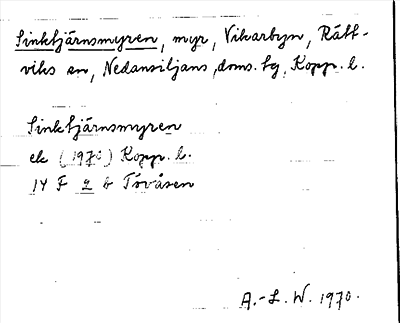 Sinktjärnsmyren, myr, Vikarbyn, Rätt-
viks sn, Nedansiljans doms. tg, Kopp. l.
Sinktjärnsmyren
ek (1970) Kopp. l.
14 F 2 b Tövåsen
A.-L. W. 1970.